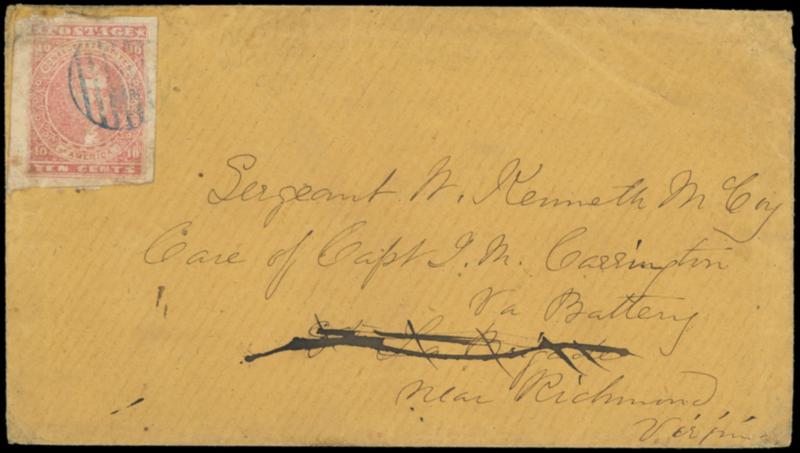 POSTAGE
10 10
CONFEDERATE STATES
OF AMERICA
10 10
TEN CENTS
Sergeant W. Kenneth McCoy
Care of Capt J. M. Carrington
Va Battery
Brigade
near Richmond
Virginia